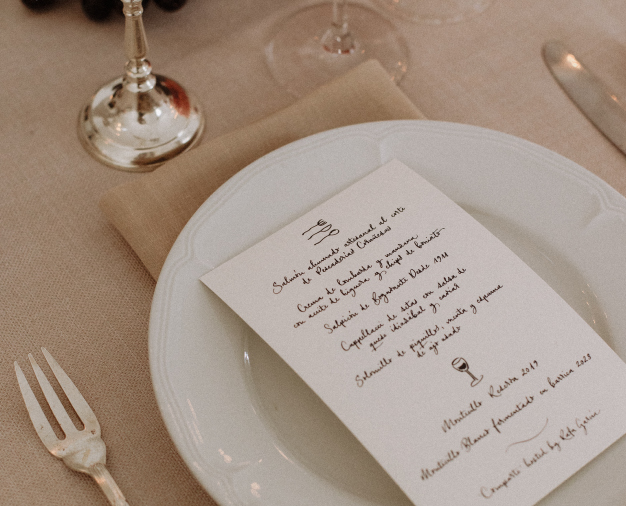 Salmón ahumado artesanal al corte
de Pescaderías Coruñesas
Crema de lombarda y manzana
con aceite de higuera y chips de boniato
Salpicón de Bogavante Desde 1911
Cappellacci de setas con salsa de
queso idiazábal y caviar
Solomillo de piquillos, menta y espuma
de ajo asado
Montecillo Reserva 2019
Montecillo Blanco fermentado en barrica 2023
Comporta hosted by Rafa